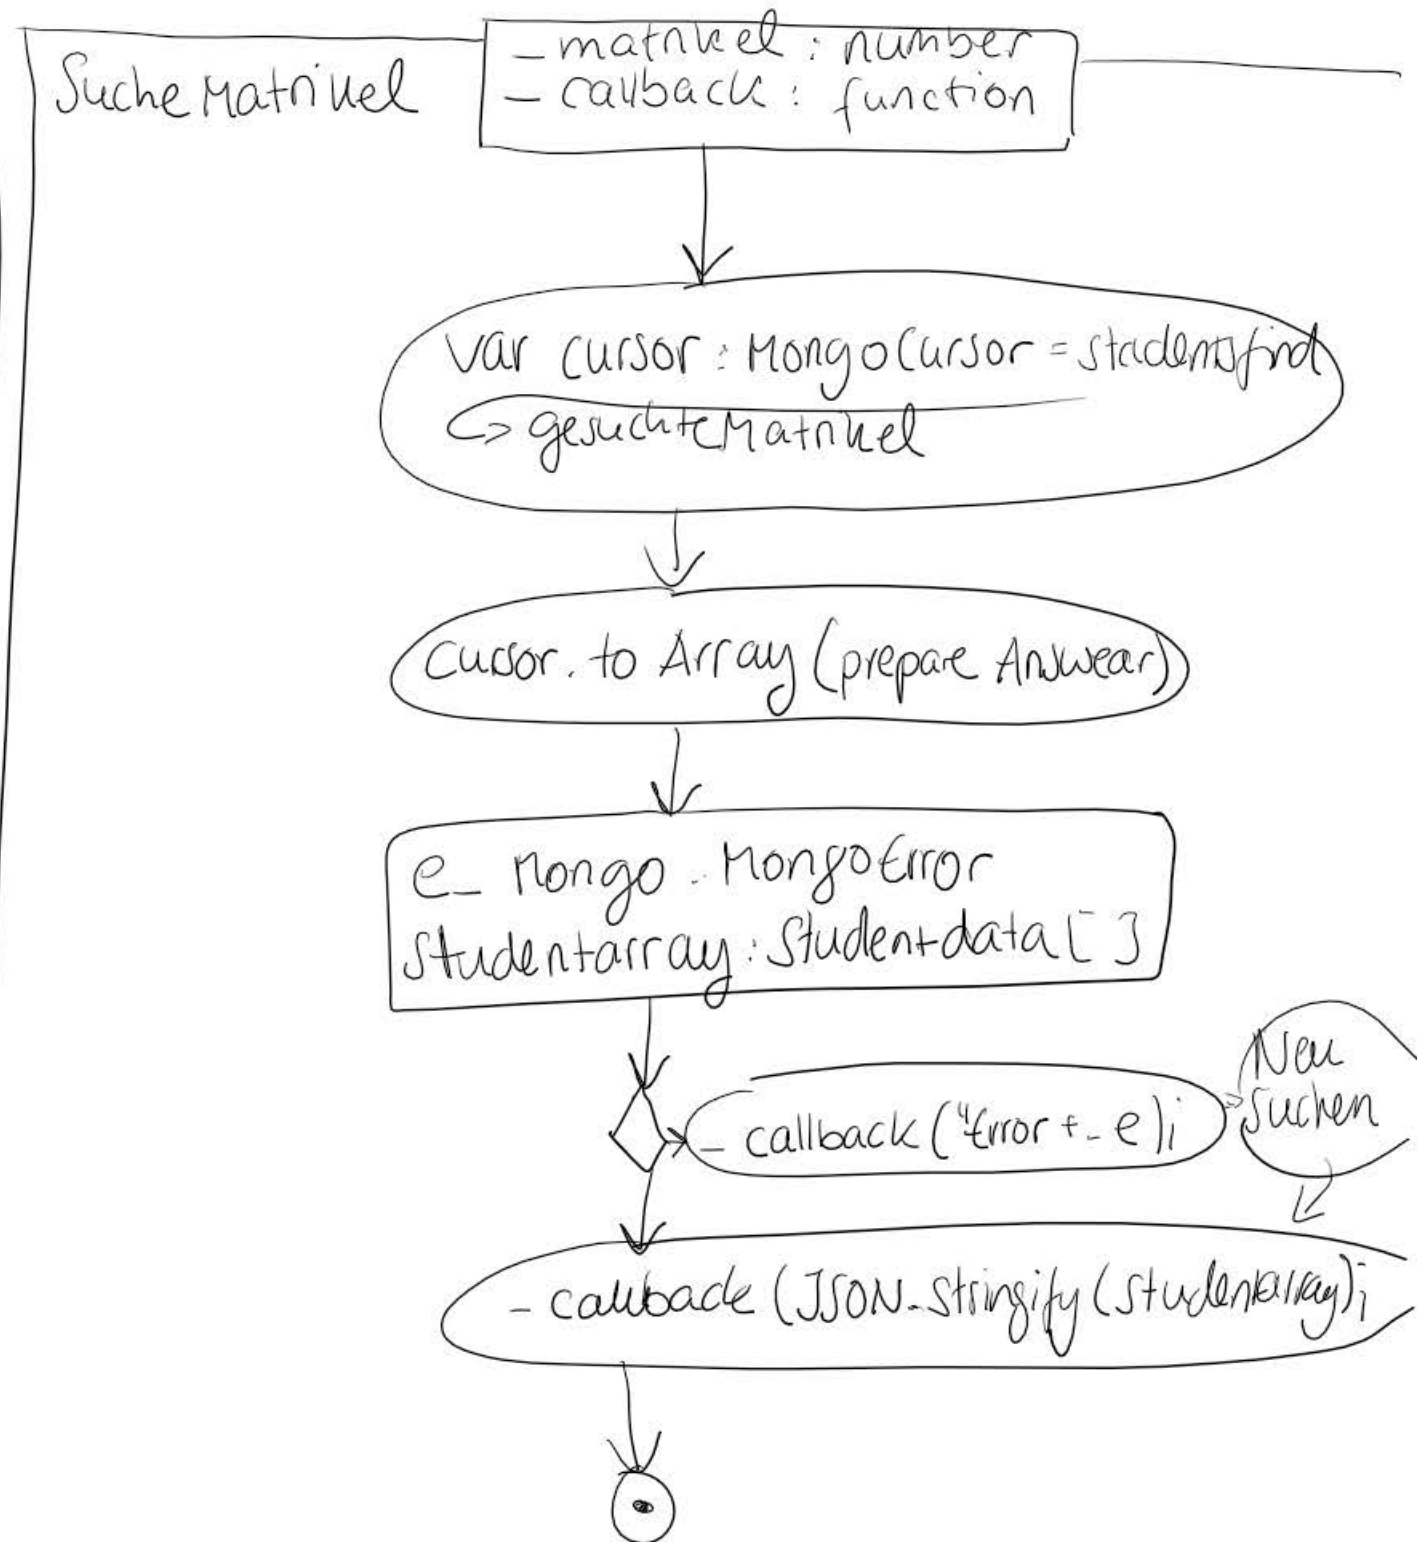 Suche Matrikel
_ matrikel : number
_ callback : function
var cursor : MongoCursor = students.find
↳ gesuchteMatrikel
cursor. to Array (prepare Answear)
e_ Mongo : MongoError
Studentarray : Studentdata [ ]
_ callback ("Error + _ e);
Neu
suchen
_ callback (JSON.stringify (studentarray);